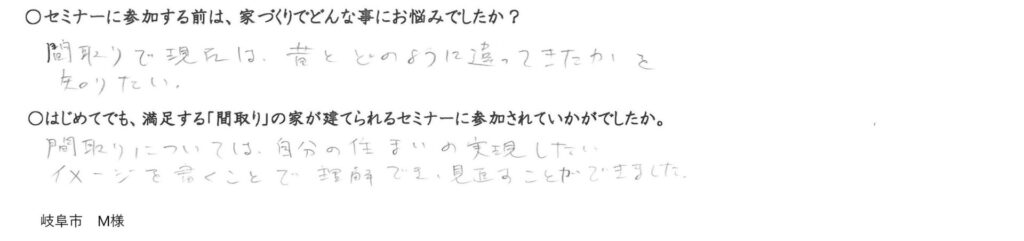 〇セミナーに参加する前は、家づくりでどんな事にお悩みでしたか？
間取りで現在は、昔とどのように違ってきたかを
知りたい。
〇はじめてでも、満足する「間取り」の家が建てられるセミナーに参加されていかがでしたか。
間取りについては、自分の住まいの実現したい
イメージを書くことで理解でき、見直すことができました。
岐阜市　M様